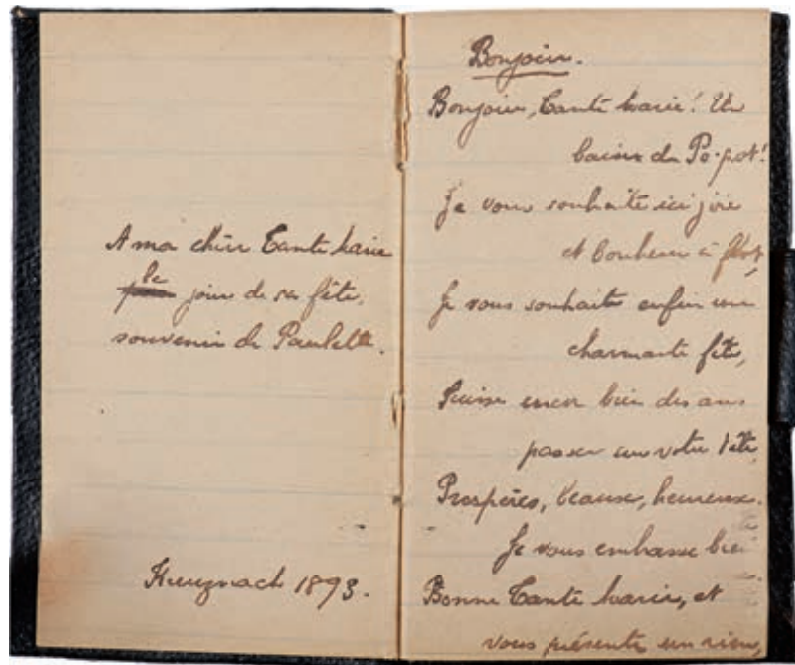 A ma chère Tante Marie
le
jour de sa fête,
souvenir de Paulette.
Kreuznach 1893.
Bonjour.
Bonjour, Tante Marie! Un
baiser de Po-pot!
Je vous souhaite ici joie
et bonheur à flot,
Je vous souhaite enfin une
charmante fête,
Puisse encor bien des ans
passer sur votre tête
Prospères, beaux, heureux.
Je vous embrasse bien
Bonne Tante Marie, et
vous présente un rien,